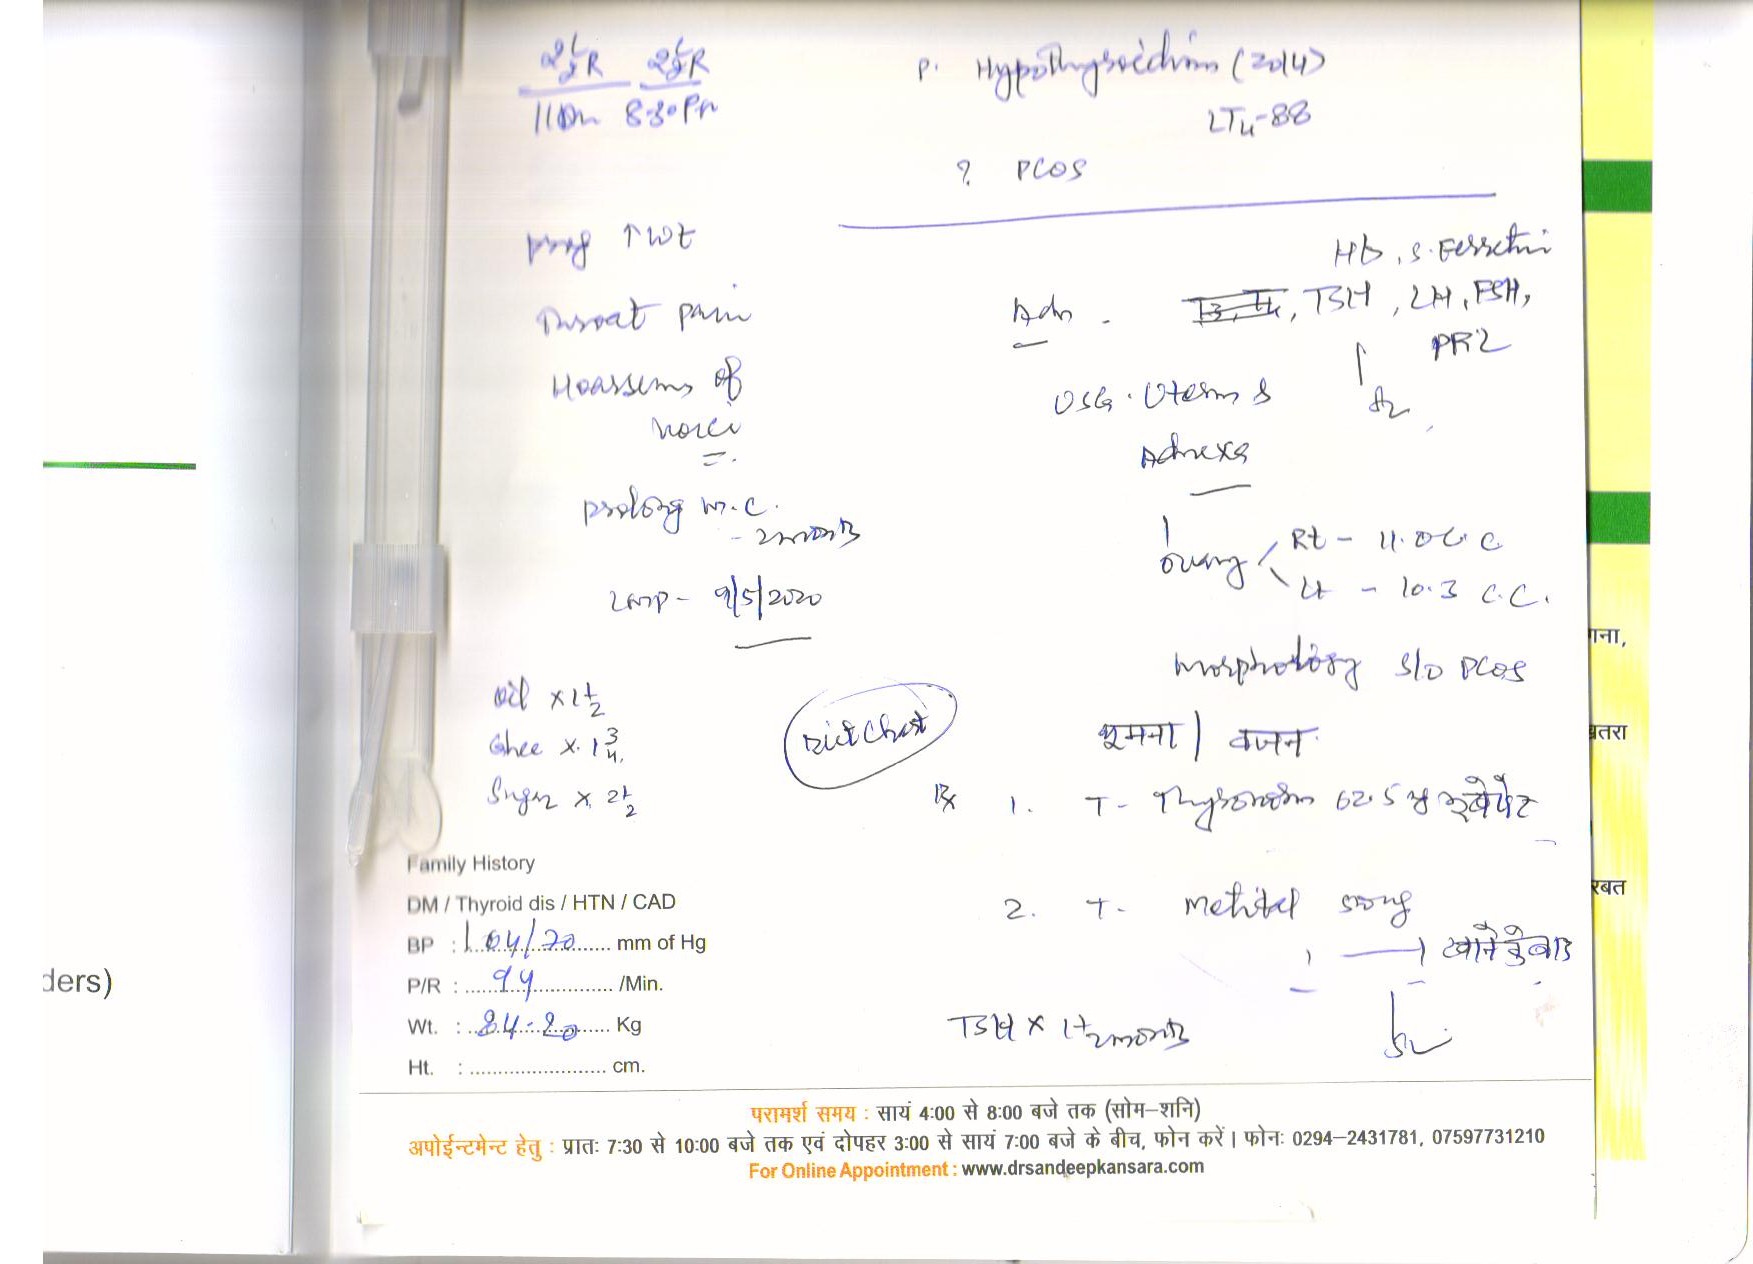 2½R 2½R
11Am 8:30Pm
P. Hypothyroidism (2014)
LT4-88
? PCOS
prog ↑ wt
Throat pain
Hoarseness of
voice
prolong m.c.
- 2 months
LMP - 9/5/2020
Oil x 1½
Ghee x 1¾
Sugar x 2½
Diet Chart
Hb, S. Ferretin
Adv. T3, T4, TSH, LH, FSH,
PRL
USG. Uterus &
Adnexa
Ovary Rt - 11.0 C.C
Lt - 10.3 C.C.
Morphology S/o PCOS
घूमना / वजन
Rx 1. T- Thyronorm 62.5 भूखे पेट
2. T- Metital 500mg
1 — 1 खाने के बाद
TSH x 1½ months
Family History
DM / Thyroid dis / HTN / CAD
BP : 104/70 mm of Hg
P/R : 94 /Min.
Wt. : 84.20 Kg
Ht. : cm.
परामर्श समय : सायं 4:00 से 8:00 बजे तक (सोम–शनि)
अपोईन्टमेन्ट हेतु : प्रातः 7:30 से 10:00 बजे तक एवं दोपहर 3:00 से सायं 7:00 बजे के बीच, फोन करें। फोनः 0294–2431781, 07597731210
For Online Appointment : www.drsandeepkansara.com
ders)